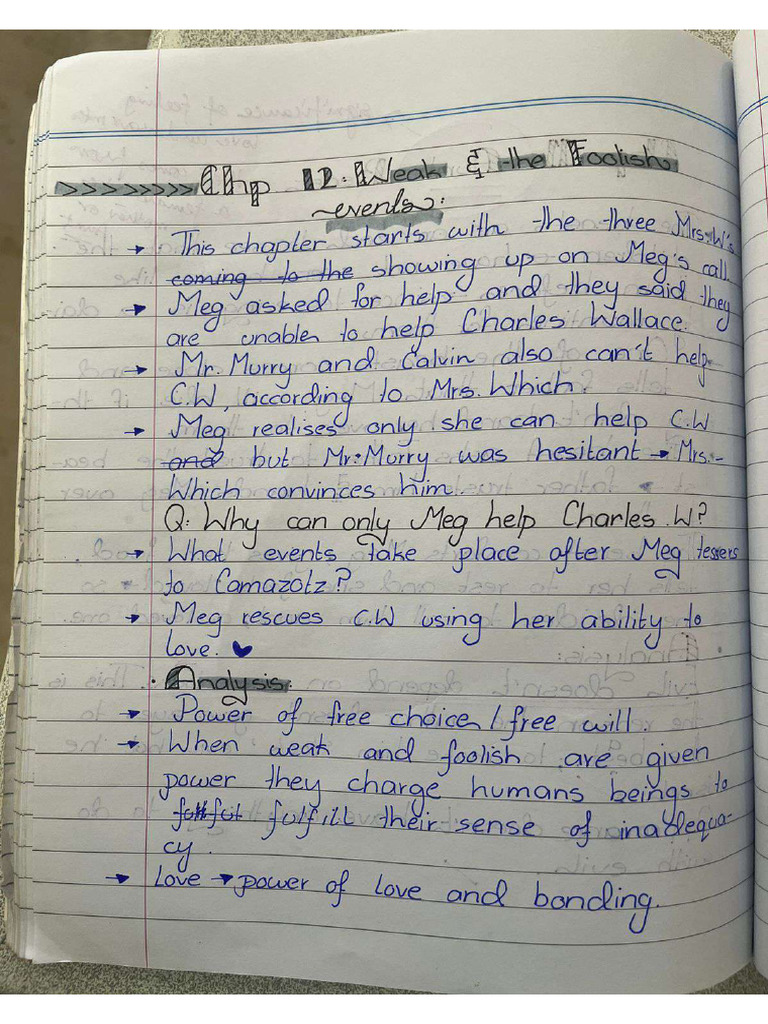 >>>>>>>> Chp 12: Weak & the Foolish
~events:
→ This chapter starts with the three Mrs.W's
coming to the showing up on Meg's call.
→ Meg asked for help and they said they
are unable to help Charles Wallace.
→ Mr. Murry and Calvin also can't help
C.W, according to Mrs. Which.
→ Meg realises only she can help C.W
and but Mr. Murry was hesitant → Mrs.-
Which convinces him.
Q: Why can only Meg help Charles W?
→ What events take place after Meg tessers
to Camazotz?
→ Meg rescues C.W using her ability to
love. ♥
· Analysis:
→ Power of free choice/free will.
→ When weak and foolish are given
power they charge humans beings to
fulfill their sense of inadequa-
cy.
→ Love → power of love and bonding.